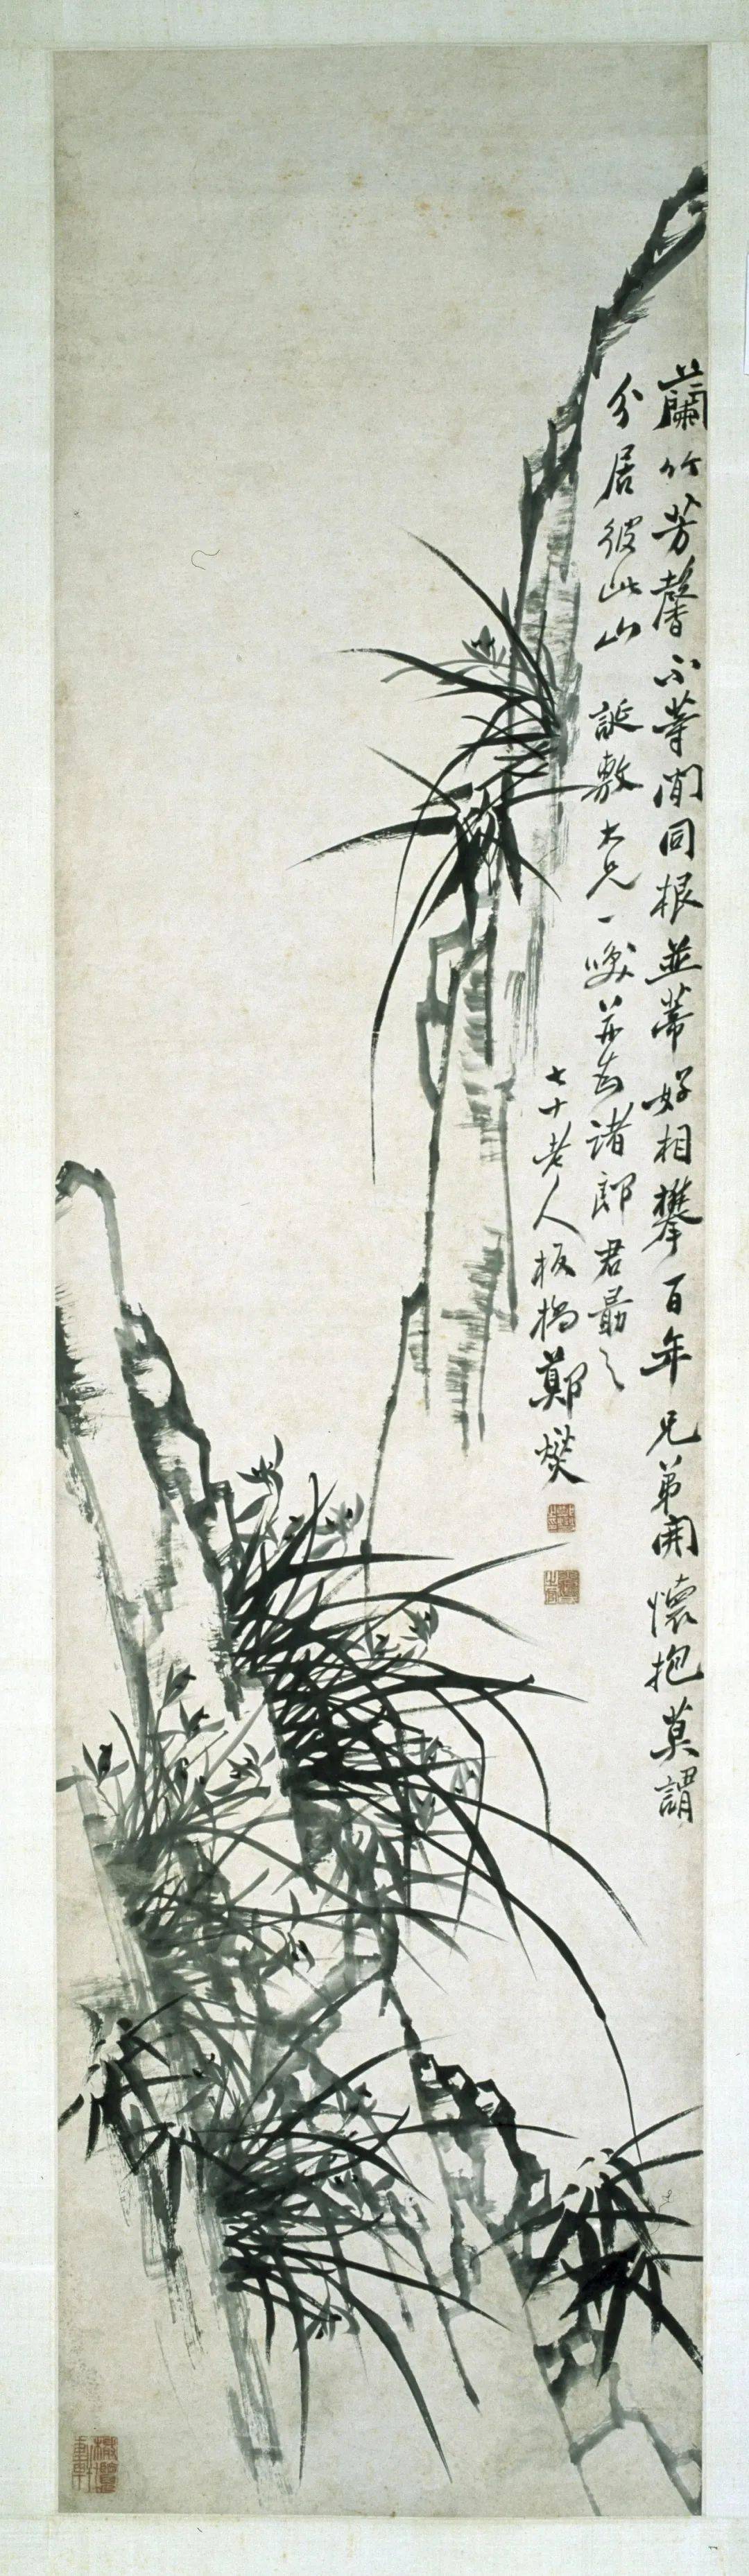 蘭竹芳馨不等閒同根並蒂好相攀百年兄弟開懷抱莫謂
分居彼此山 誕敷大兄一咲并示諸郎君勗之
七十老人板橋鄭燮